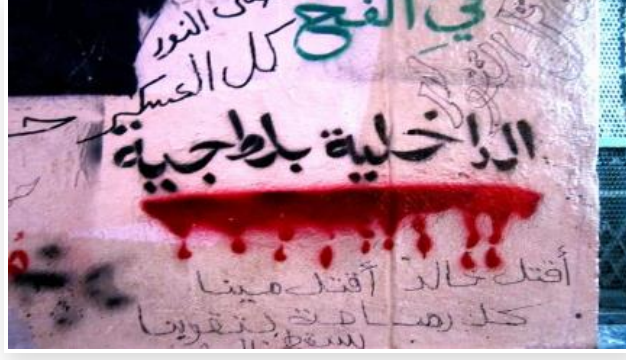 النور
في الفخ
كل العسكر
الداخلية بلطجية
أقتل خالد أقتل مينا
كل رصاصة بتقوينا